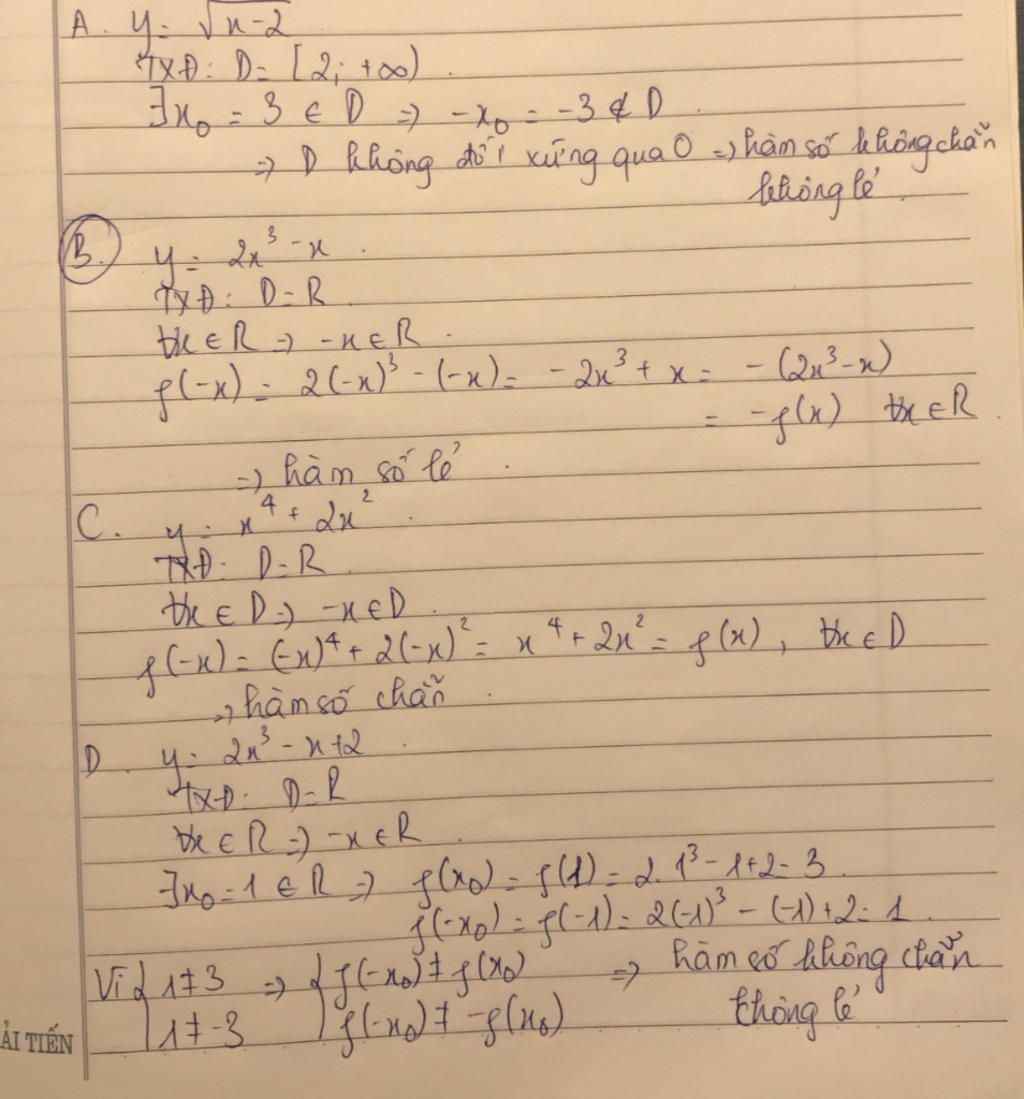 A. y = √x-2
TXĐ: D = [2; +∞).
∃x₀ = 3 ∈ D => -x₀ = -3 ∉ D.
=> D không đối xứng qua O => hàm số không chẵn
không lẻ.
B. y = 2x³ - x.
TXĐ: D = R.
∀x ∈ R => -x ∈ R.
f(-x) = 2(-x)³ - (-x) = -2x³ + x = -(2x³-x)
= -f(x) ∀x ∈ R.
=> hàm số lẻ.
C. y = x⁴ + 2x².
TXĐ: D = R.
∀x ∈ D => -x ∈ D.
f(-x) = (-x)⁴ + 2(-x)² = x⁴ + 2x² = f(x), ∀x ∈ D
=> hàm số chẵn.
D. y = 2x³ - x + 2.
TXĐ: D = R
∀x ∈ R => -x ∈ R.
∃x₀ = 1 ∈ R => f(x₀) = f(1) = 2.1³ - 1 + 2 = 3.
f(-x₀) = f(-1) = 2(-1)³ - (-1) + 2 = 1.
Vì { 1 ≠ 3 => { f(-x₀) ≠ f(x₀) => hàm số không chẵn
1 ≠ -3 f(-x₀) ≠ -f(x₀) không lẻ
ẢI TIẾN